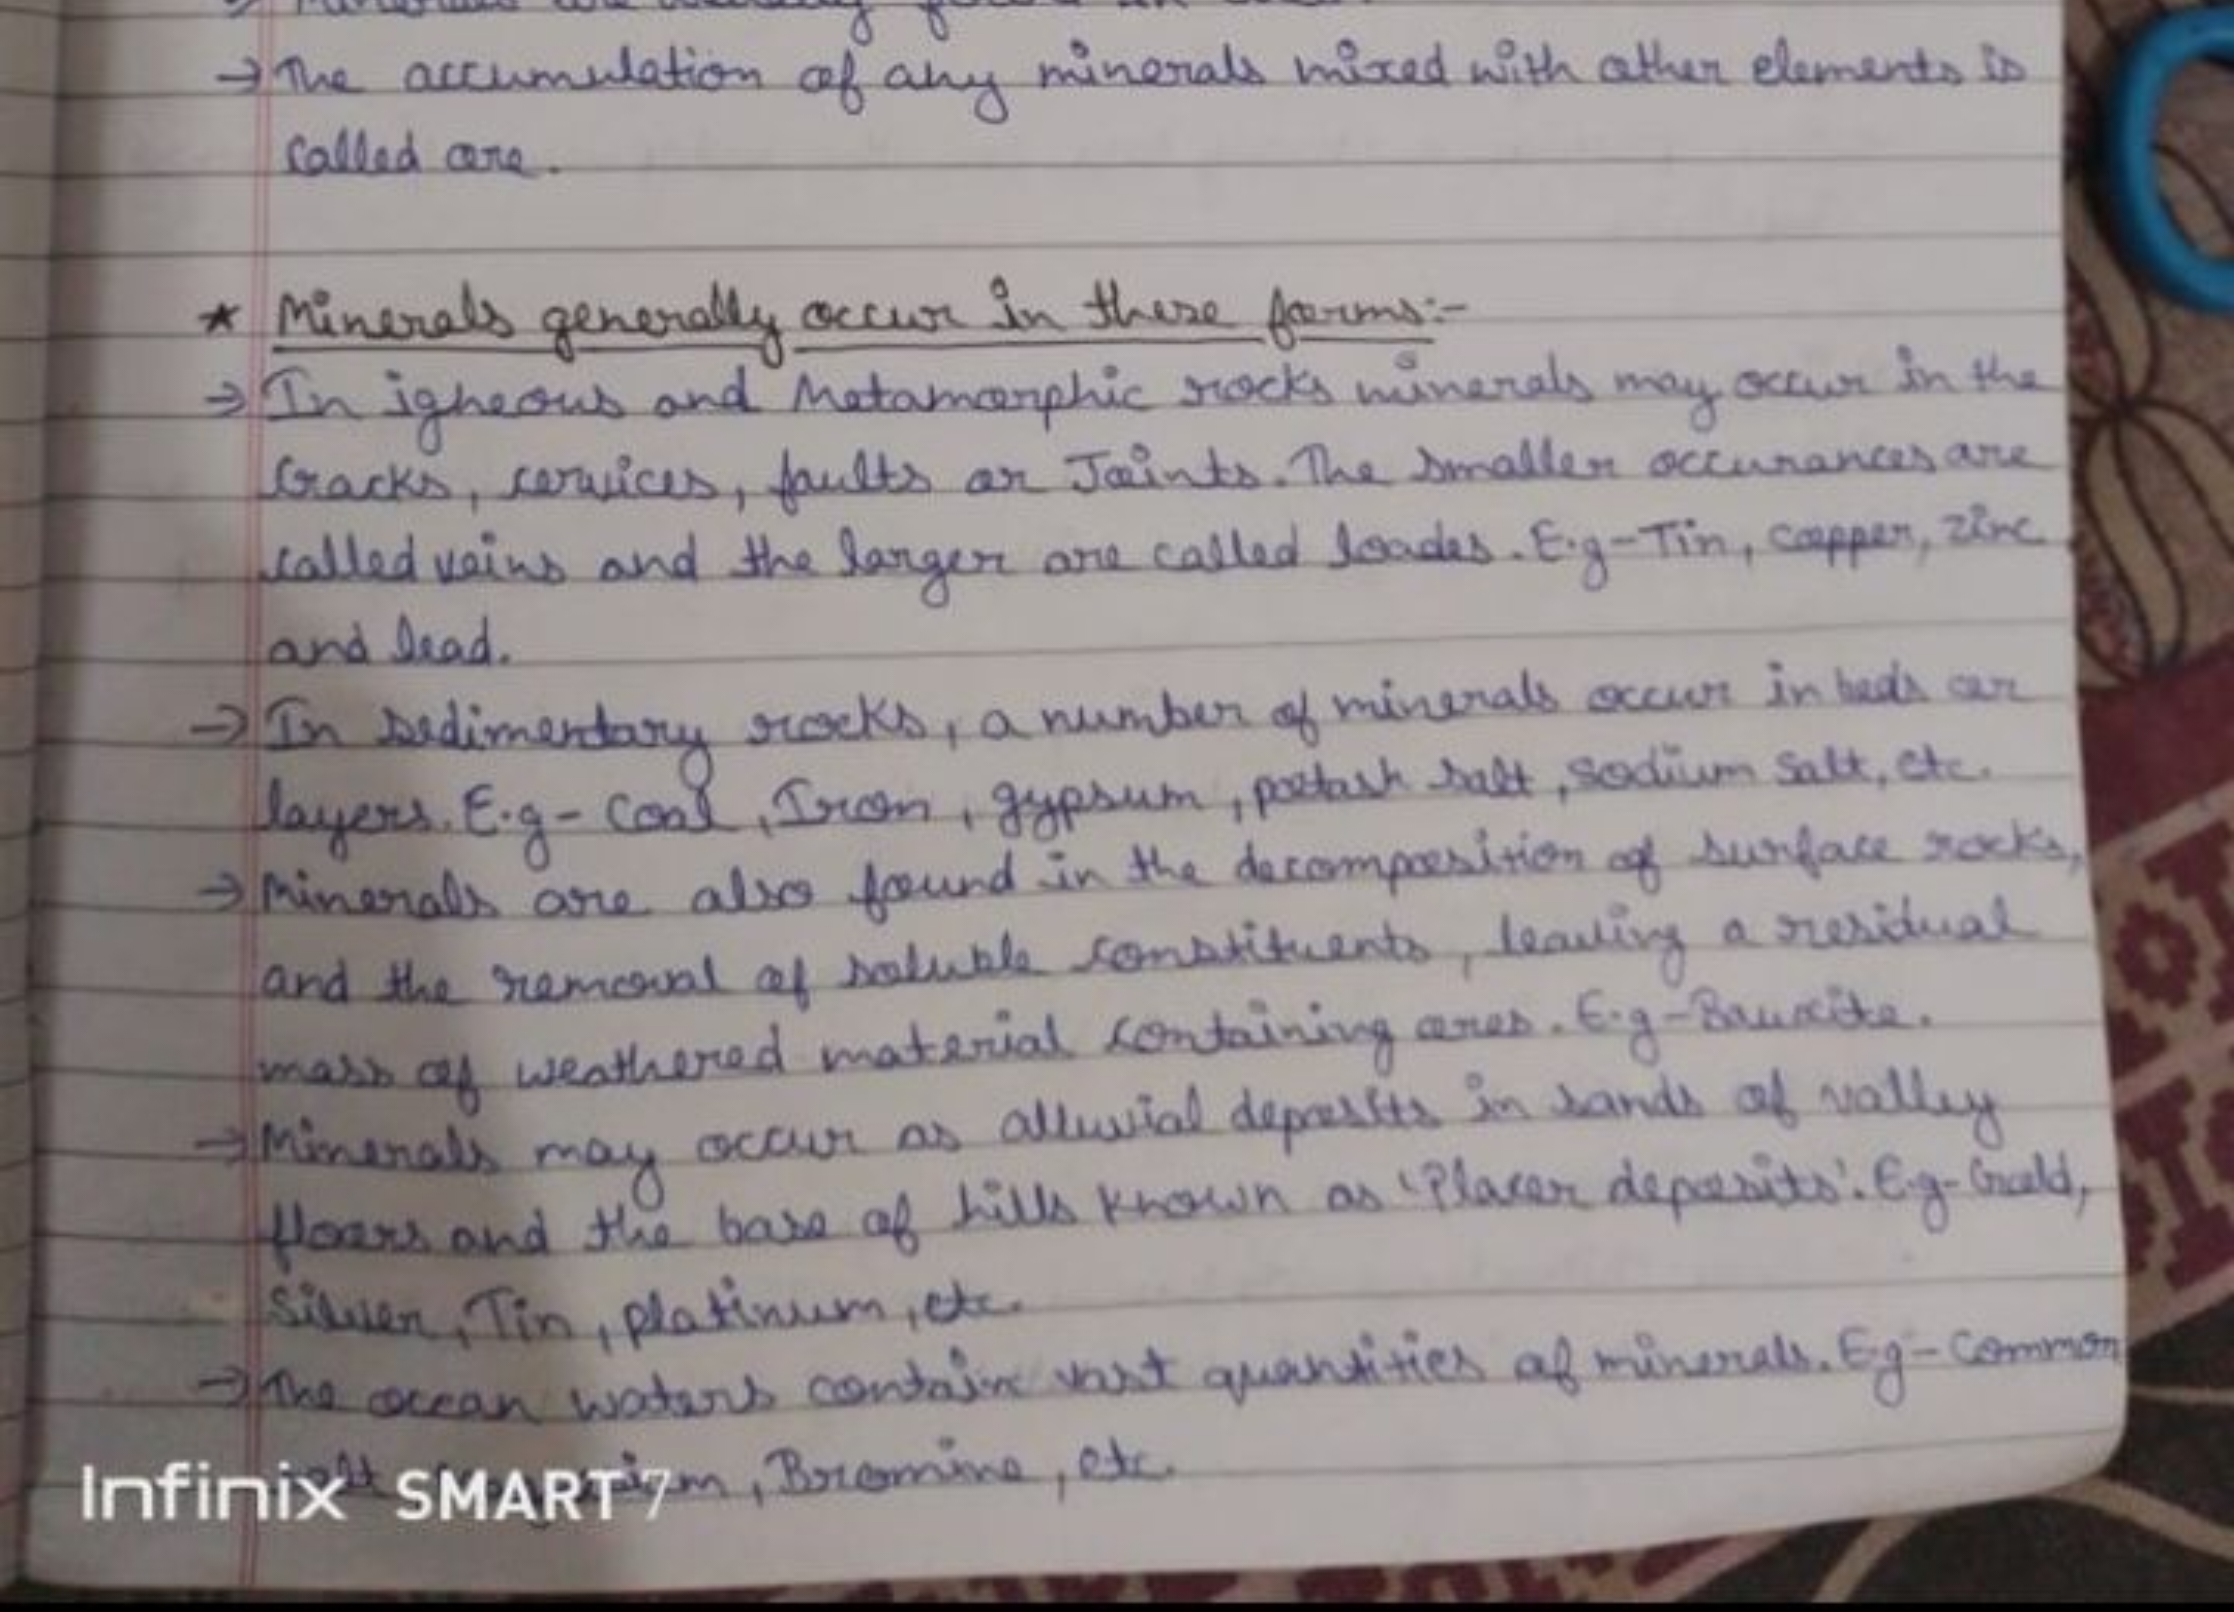 → Minerals are usually found in ores.
→ The accumulation of any minerals mixed with other elements is
called ore.
* Minerals generally occur in these forms:-
→ In igneous and Metamorphic rocks minerals may occur in the
Cracks, cervices, faults or Joints. The smaller occurances are
called veins and the larger are called loades. E.g-Tin, copper, zinc
and lead.
→ In sedimentary rocks, a number of minerals occur in beds or
layers. E.g- Coal, Iron, gypsum, pottash salt, sodium salt, etc.
→ Minerals are also found in the decomposition of surface rocks,
and the removal of soluble constituents, leaving a residual
mass of weathered material containing ores. E.g-Bauxite.
→ Minerals may occur as alluvial deposits in sands of valley
floors and the base of hills known as 'Placer deposits'. E.g- Gold,
Silver, Tin, platinum, etc.
→ The ocean waters contain vast quantities of minerals. E.g- Common
salt, Bromine, etc.
Infinix SMART 7